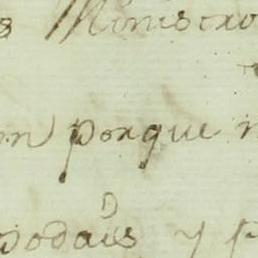 s Ministro
on porque n
podais y p